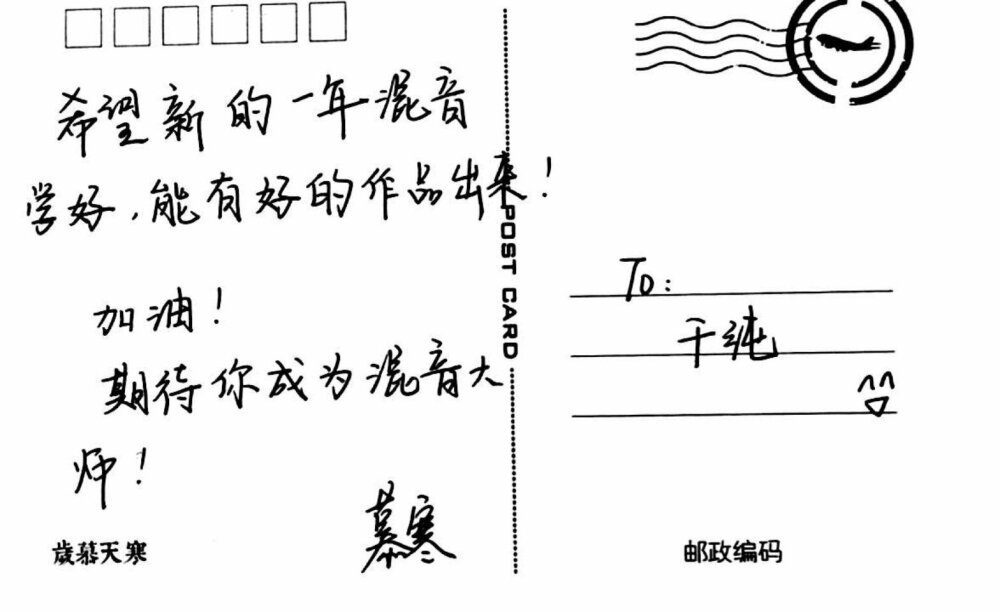 希望新的一年混音
学好，能有好的作品出来！
加油！
期待你成为混音大
师！
慕寒
歲慕天寒
POST CARD
To：
干纯
邮政编码